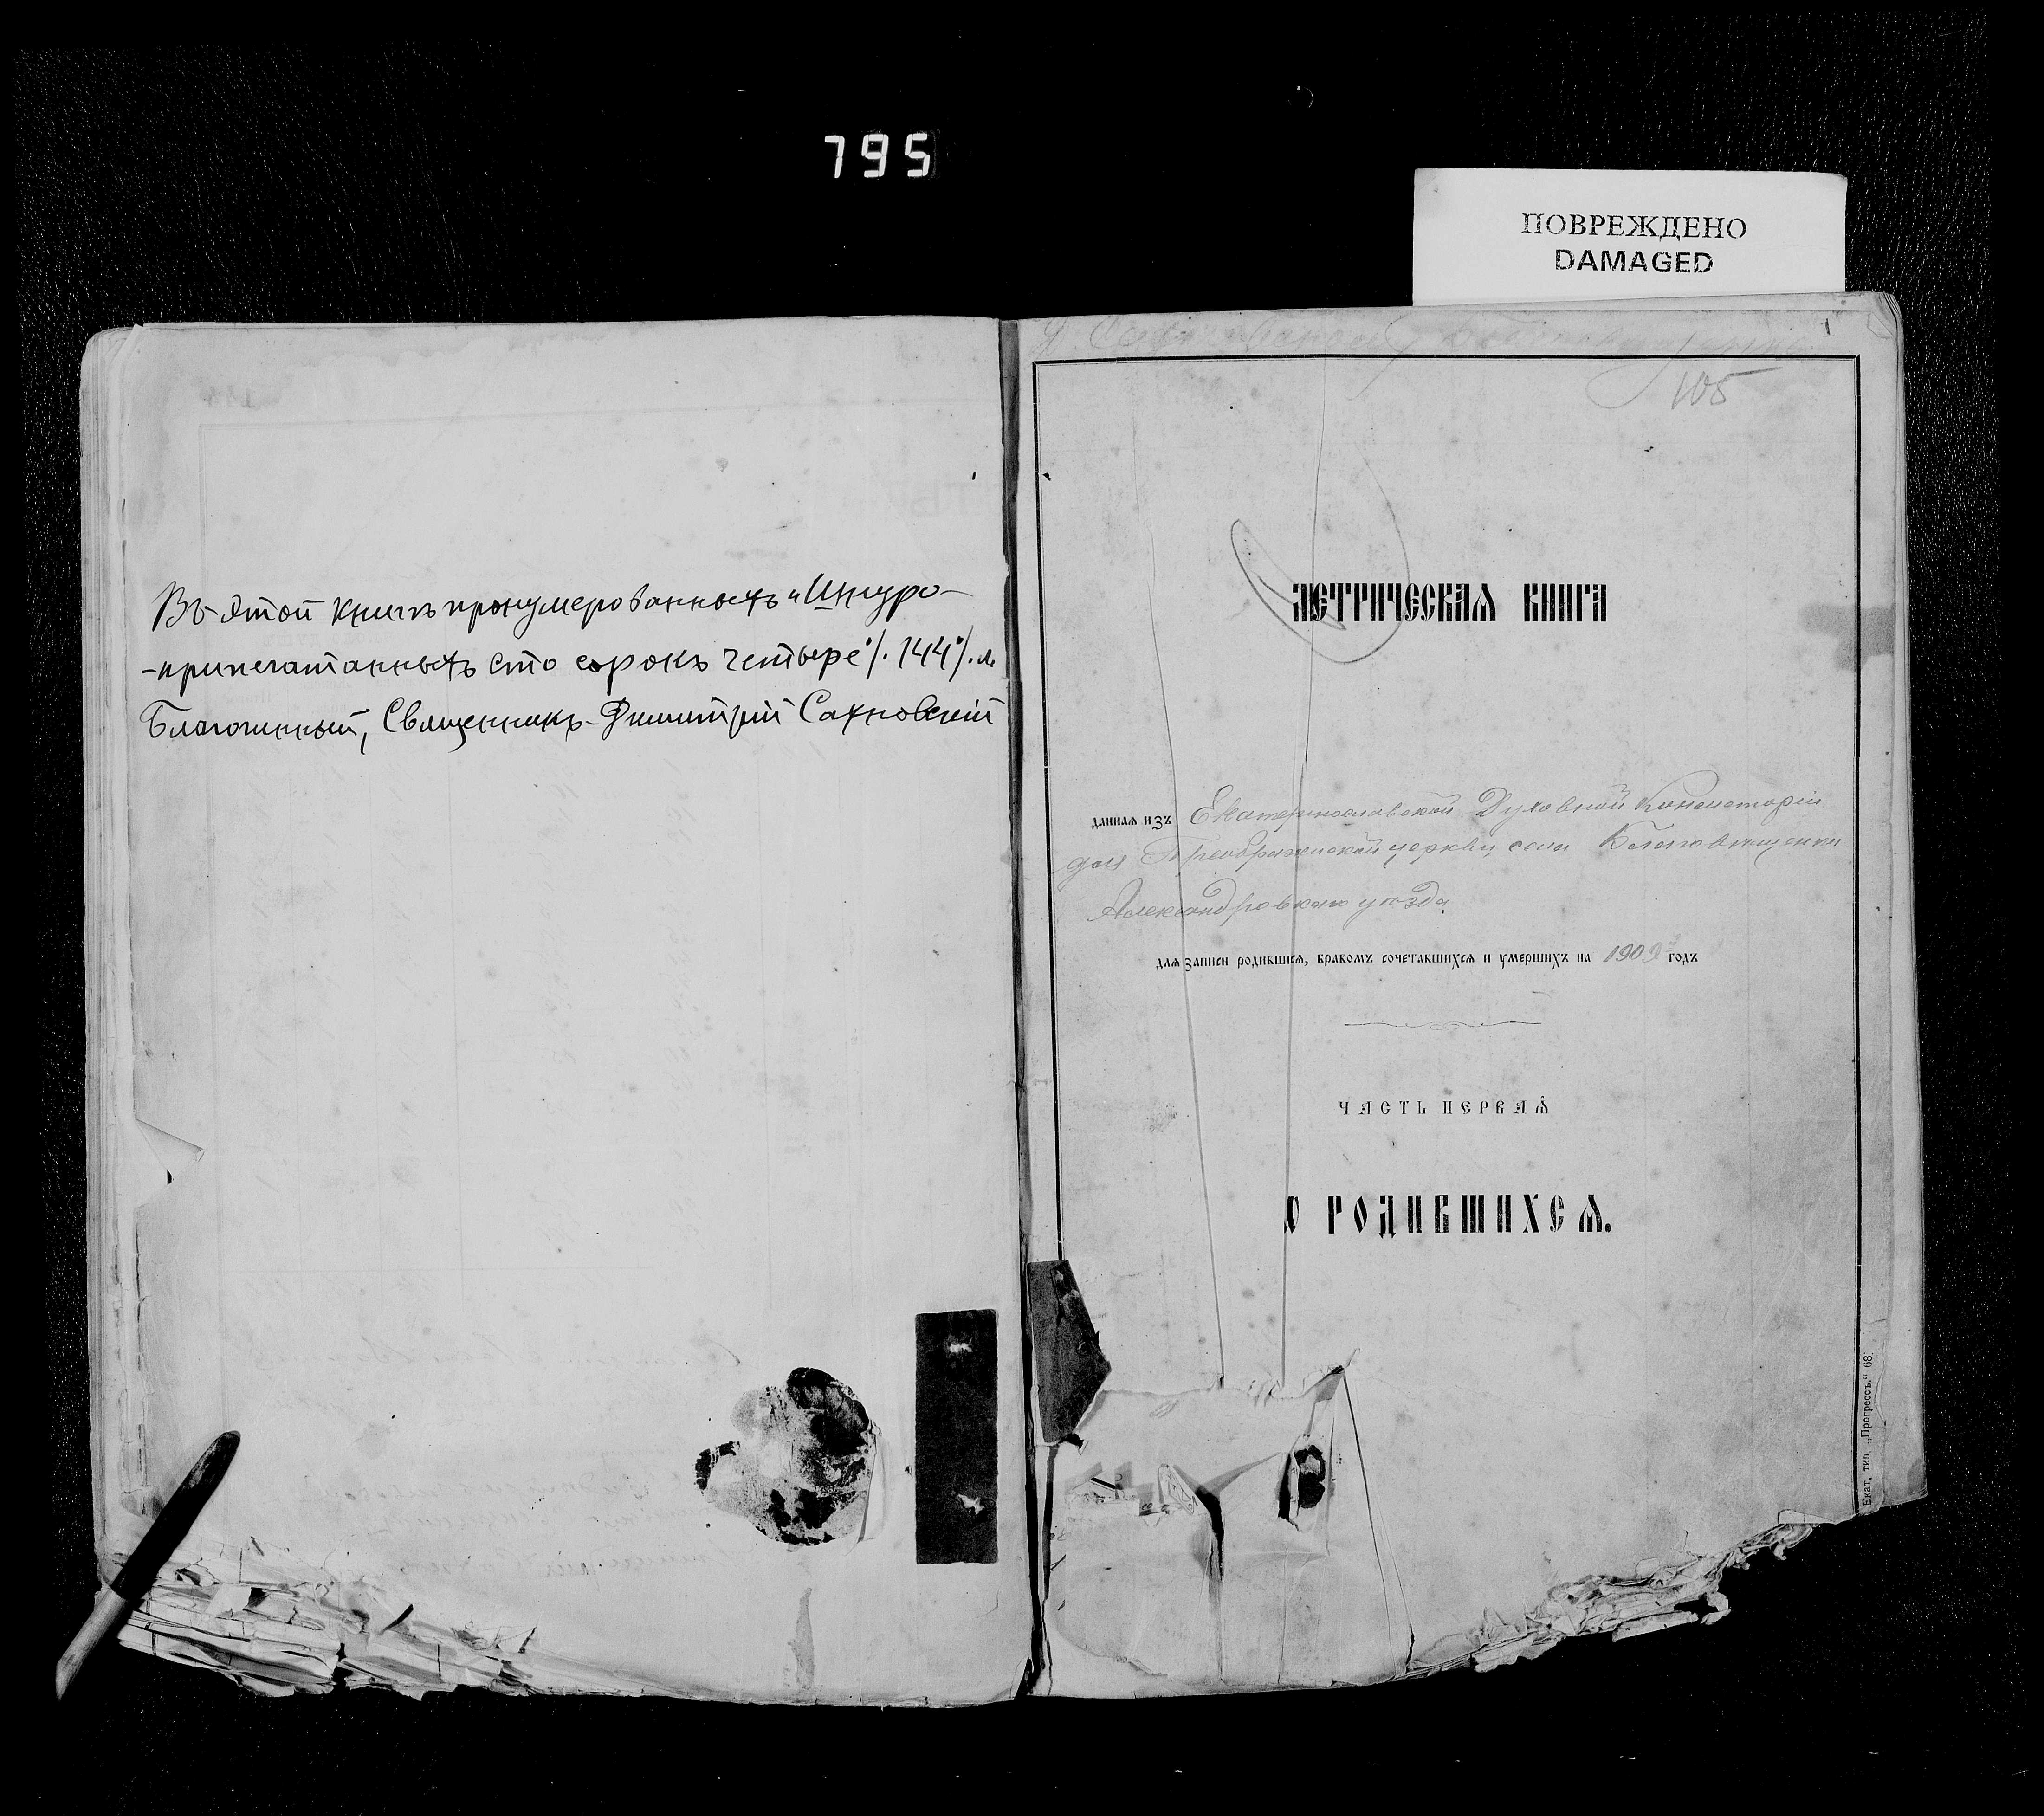 795
ПОВРЕЖДЕНО
DAMAGED
Въ этой книгѣ пронумерованныхъ и Шнуро-
-припечатанныхъ сто сорокъ четыре ·/. 144 ·/. л.
Благочинный, Священникъ Димитрій Сахновскій
1
105
МЕТРИЧЕСКАЯ КНИГА
данная изъ Екатеринославской Духовной Консисторіи
для Преображенской церкви села Благовѣщенки
Александровскаго уѣзда
для записи родившихся, бракомъ сочетавшихся и умершихъ на 1909 годъ
ЧАСТЬ ПЕРВАЯ
О РОДИВШИХСЯ.
Екат. тип. „Прогрессъ." 68